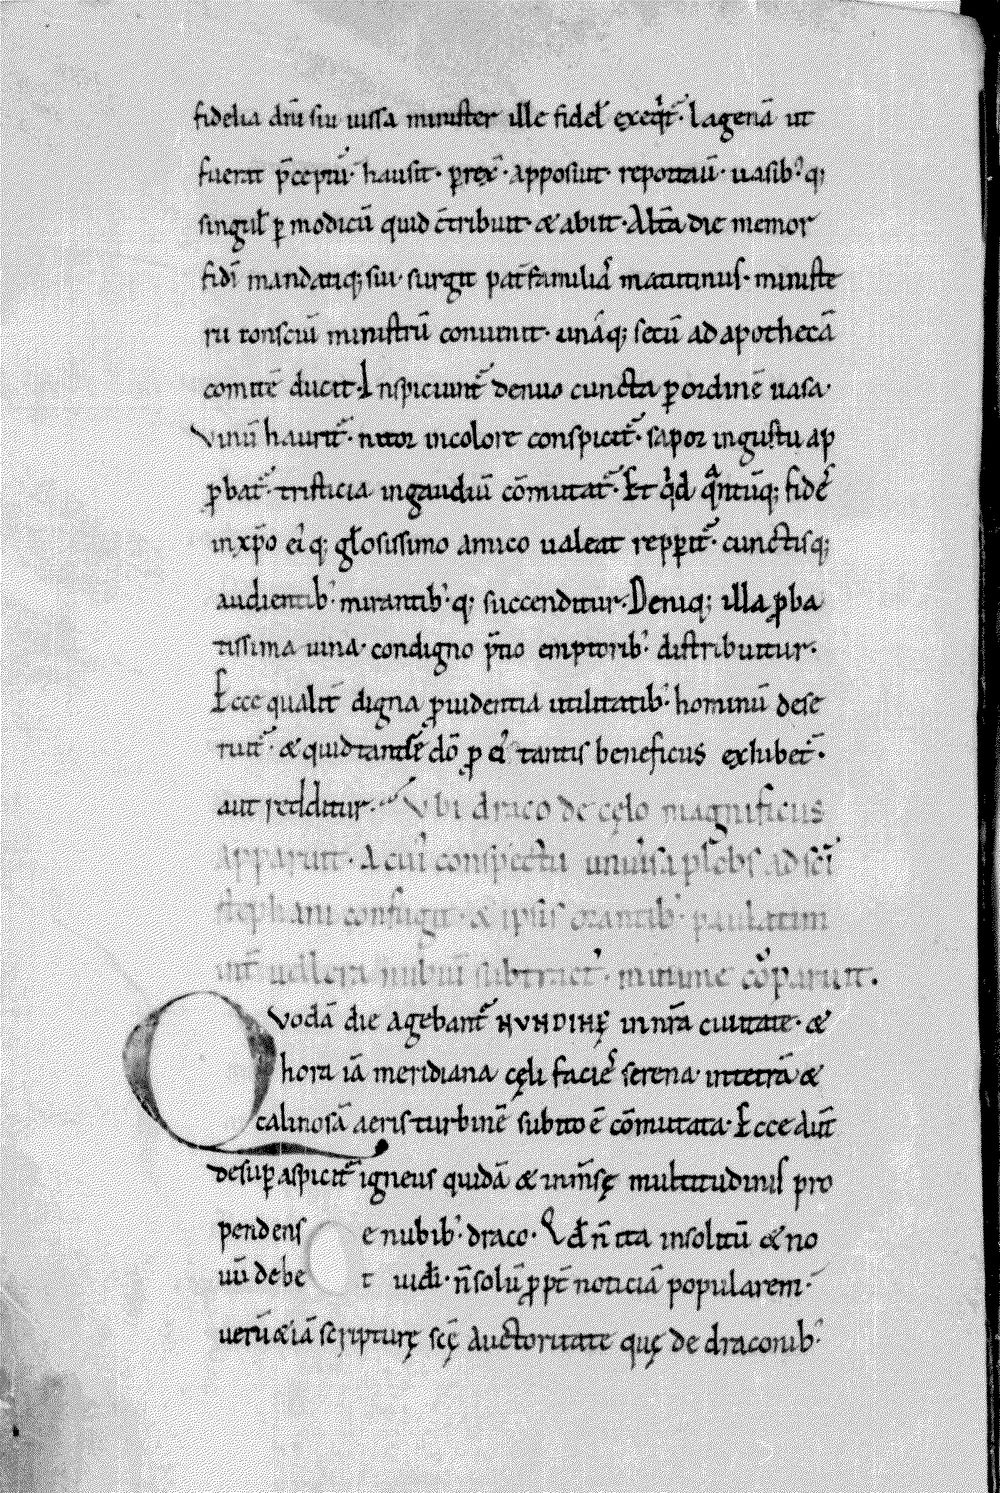 fidelia dni sui iussa minister ille fidel exeqt̃. Lagenã ut
fuerat p̃ceptũ. hausit. prex̃. apposuit. reportauit. uasib; q;
singul ꝑ modicũ quid c̃tribuit. & abiit. Altã die memor
fidi mandatiq; sui. surgit pat̃familiã matutinus. ministe
rii consciũ ministrũ conuenit. unáq; secũ ad apothecã
comitẽ ducit. Inspiciunt̃ denuo cuncta ꝑ ordinẽ uasa.
Vinũ haurit̃. nitor in colore conspicit̃. sapor in gustu ap
ꝓbat̃. tristicia in gaudiũ cõmutat̃. Et qd qntũq; fides
in xp̃o eiq; gl̃osissimo amico ualeat repꝑit̃. cunctisq;
audientib; mirantib; q; succenditur. Deniq; illa ꝓba
tissima uina. condigno p̃tio emptorib; distribuitur.
Ecce qualit̃ digna ꝓuidentia utilitatib; hominũ dese
ruit̃. & quid tandẽ dõ ꝓ ei tantis beneficiis exhibet̃.
aut redditur. Vbi draco de cęlo magnificus
apparuit. A cui conspectu uniũsa plebs ad sc̃i
stephani confugit. & ipsis orantib; paulatim
int̃ uellera nubiũ subtract. minime cõparuit.
Quodã die agebant̃ NVNDINĘ in nr̃a ciuitate. &
hora iã meridiana cęli facies serena. in tetrã &
calinosã aeris turbinẽ subito ẽ cõmutata. Ecce aut̃
desuꝑ aspicit̃ igneus quidã & inm̃sę multitudinis pro
pendens e nubib; draco. Qd ñ ita insolitũ & no
uũ debet uidi. ñ solũ ꝓpt̃ noticiã popularem.
uerũ & iã scripturę scę auctoritate quę de draconib;